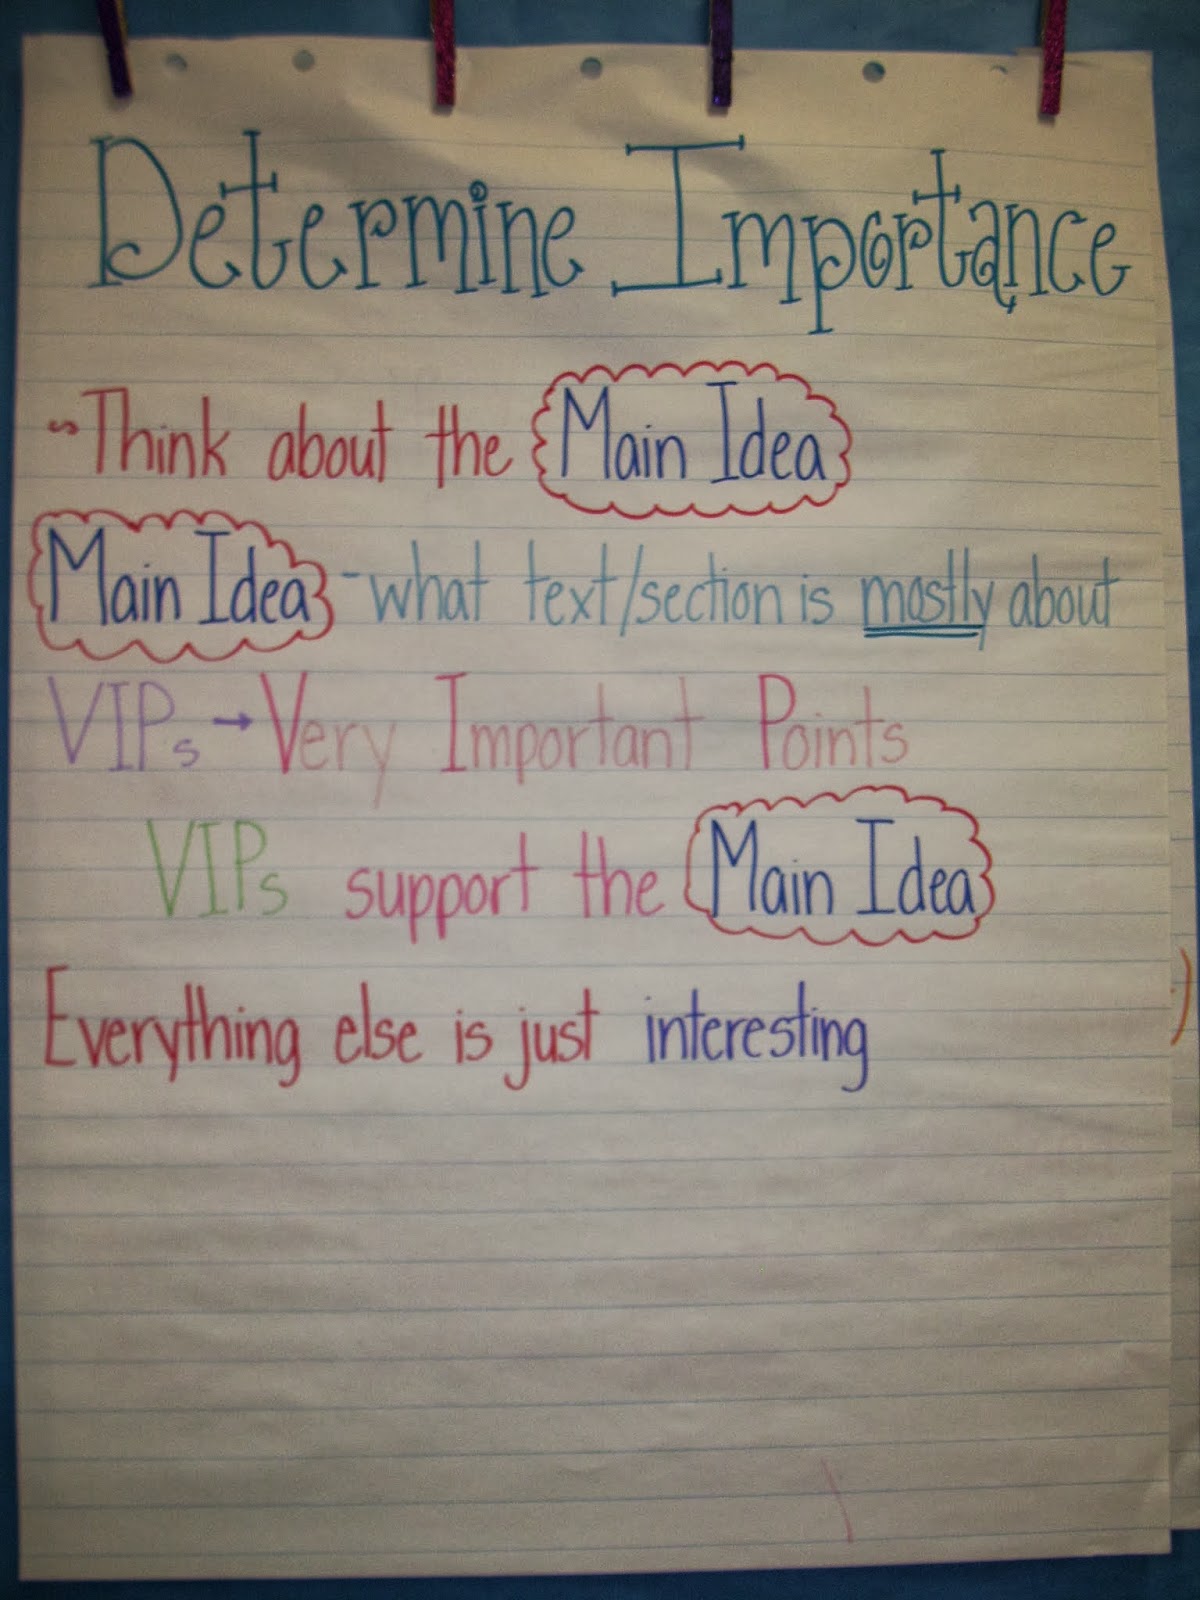 Determine Importance
~Think about the Main Idea
Main Idea -what text/section is mostly about
VIPs → Very Important Points
VIPs support the Main Idea
Everything else is just interesting